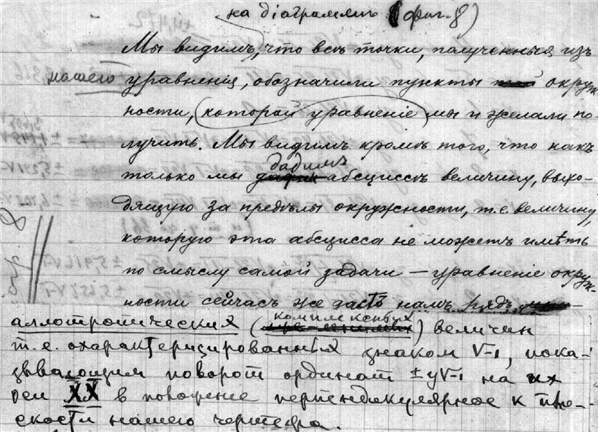 на діаграммѣ (фиг. 8)
Мы видимъ, что всѣ точки, полученныя изъ
нашего уравненія, обозначили пункты окруж-
ности, которой уравненіе мы и желали по-
лучить. Мы видимъ кромѣ того, что какъ
только мы дадимъ абсциссѣ величину, выхо-
дящую за предѣлы окружности, т.е. величину,
которую эта абсцисса не можетъ имѣть
по смыслу самой задачи — уравненіе окруж-
ности сейчасъ же дастъ намъ рядъ
аллотропических (комплексных) величин
т.е. охарактеризированных знаком √-1, пока-
зывающим поворот ординат ±y√-1 на их
оси XX в положение перпендикулярное к пло-
скости нашего чертежа.